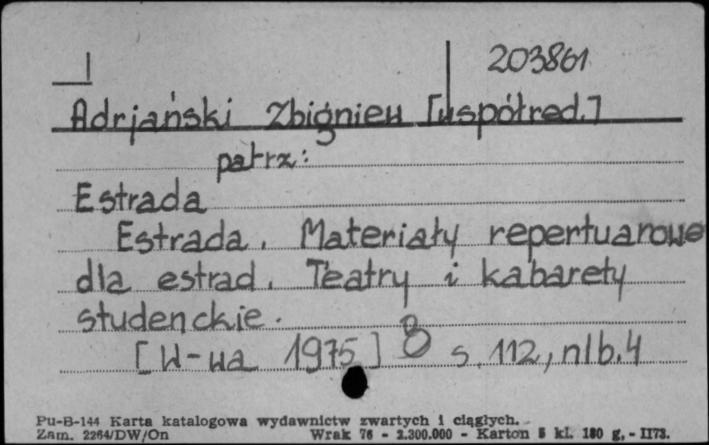 203861
Adrjański Zbigniew [współred.]
patrz:
Estrada
Estrada. Materiały repertuarowe
dla estrad. Teatry i kabarety
studenckie.
[W-wa 1975] 8 s. 112, nlb. 4
Pu-B-144 Karta katalogowa wydawnictw zwartych i ciągłych.
Zam. 2264/DW/On Wrak 76 - 2.300.000 - Karton 5 kl. 180 g. - II73.